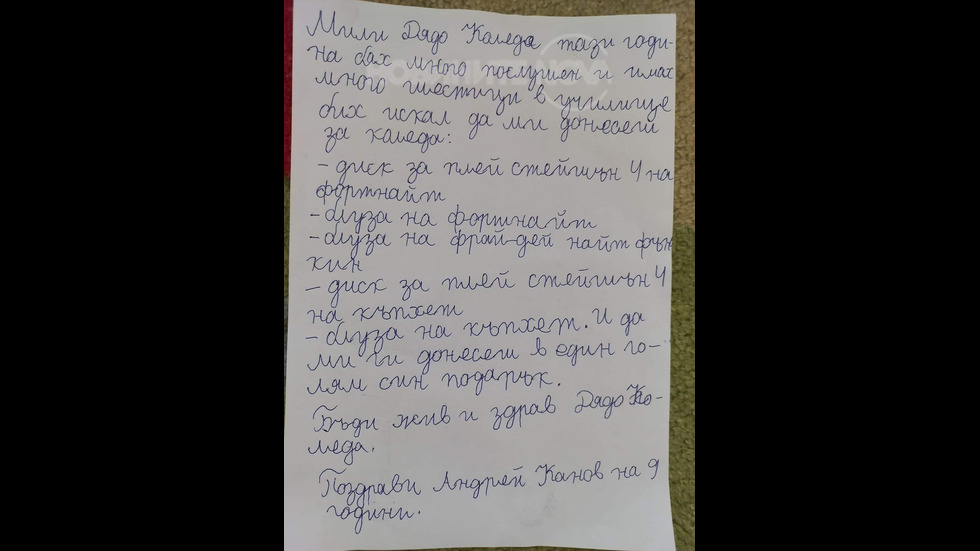 Мили Дядо Коледа тази годи-
на бях много послушен и имах
много шестици в училище
бих искал да ми донесеш
за коледа:
- диск за плей стейшън 4 на
фортнайт
- блуза на фортнайт
- блуза на фрай-дей найт фън
кин
- диск за плей стейшън 4
на къпхет
- блуза на къпхет. И да
ми ги донесеш в един го-
лям син подарък.
Бъди жив и здрав Дядо Ко-
леда.
Поздрави Андрей Канов на 9
години.